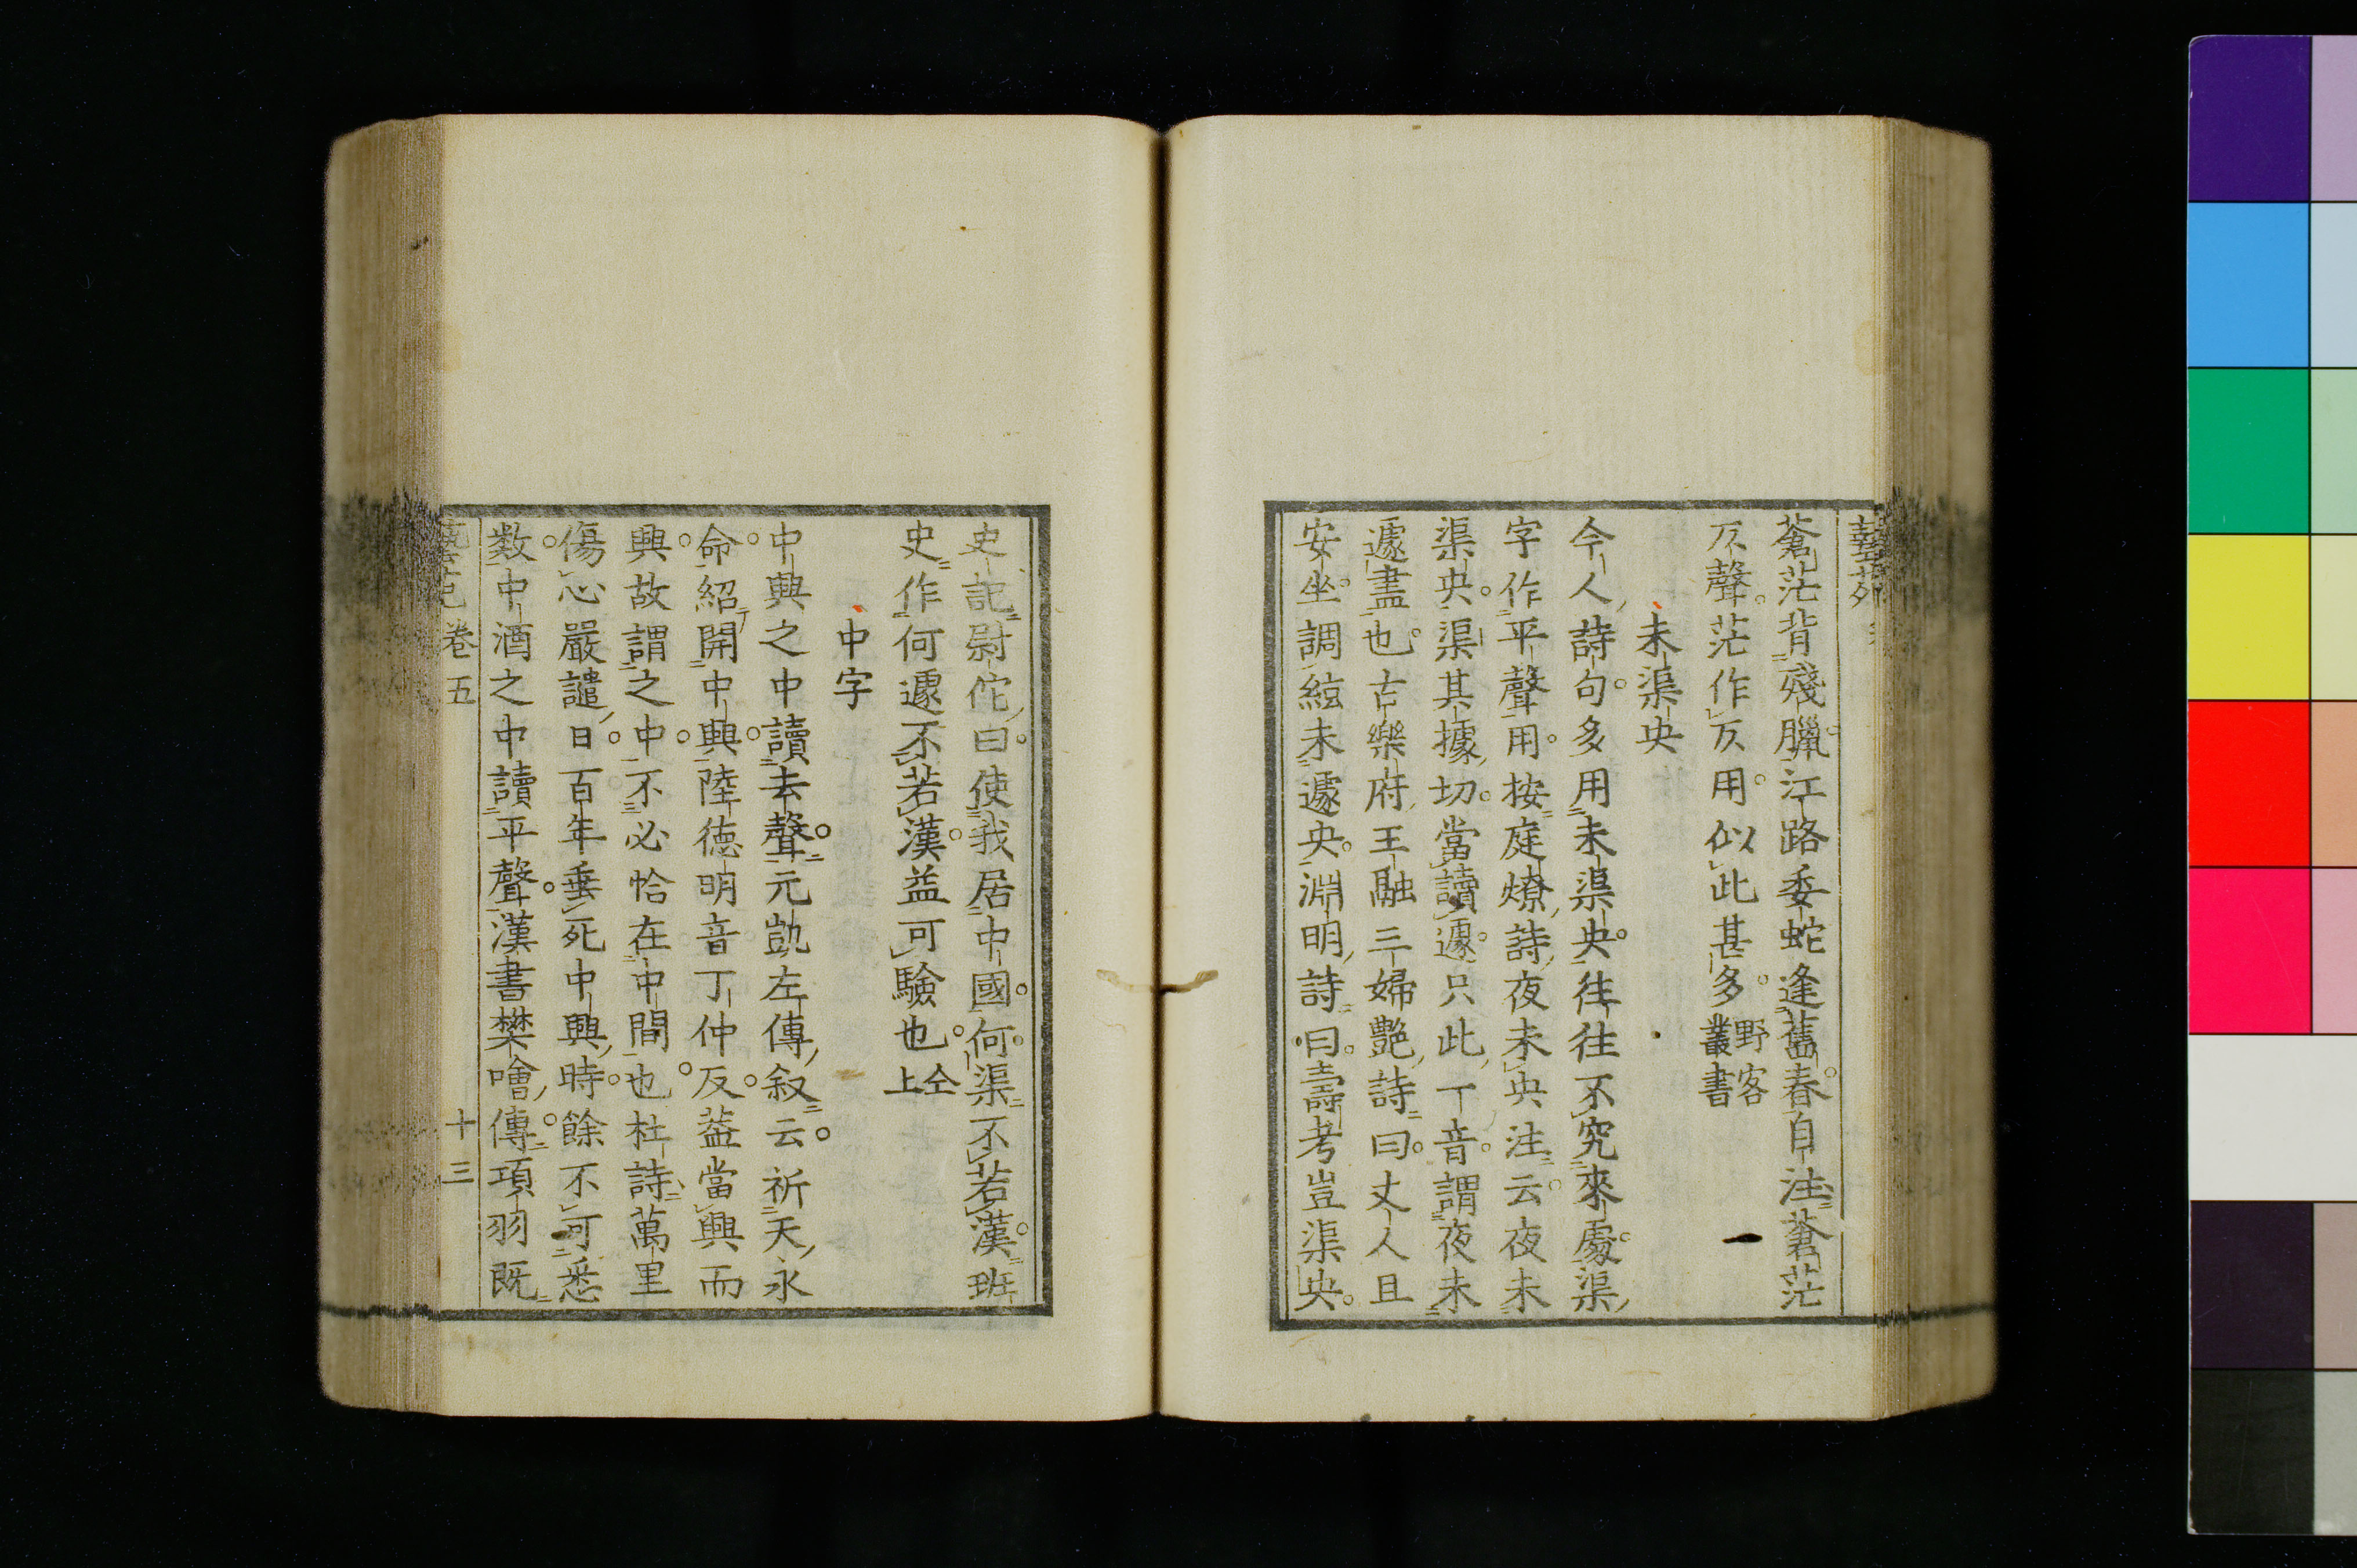 藝苑
蒼茫背殘臘江路委蛇逢舊春自注蒼茫
仄聲茫作仄用似此甚多野客叢書
未渠央
今人詩句多用未渠央往往不究來處渠
字作平聲用按庭燎詩夜未央注云夜未
渠央渠其據切當讀遽只此一音謂夜未
遽盡也古樂府王融三婦艷詩曰丈人且
安坐調絃未遽央淵明詩曰壽考豈渠央
史記尉佗曰使我居中國何渠不若漢班
史作何遽不若漢益可驗也仝上
中字
中興之中讀去聲元凱左傳叙云祈天永
命紹開中興陸德明音丁仲反葢當興而
興故謂之中中不必恰在中間也杜詩萬里
傷心嚴譴日百年垂死中興時餘不可悉
数中酒之中讀平聲漢書樊噲傳項羽既
藝苑 卷五 十三